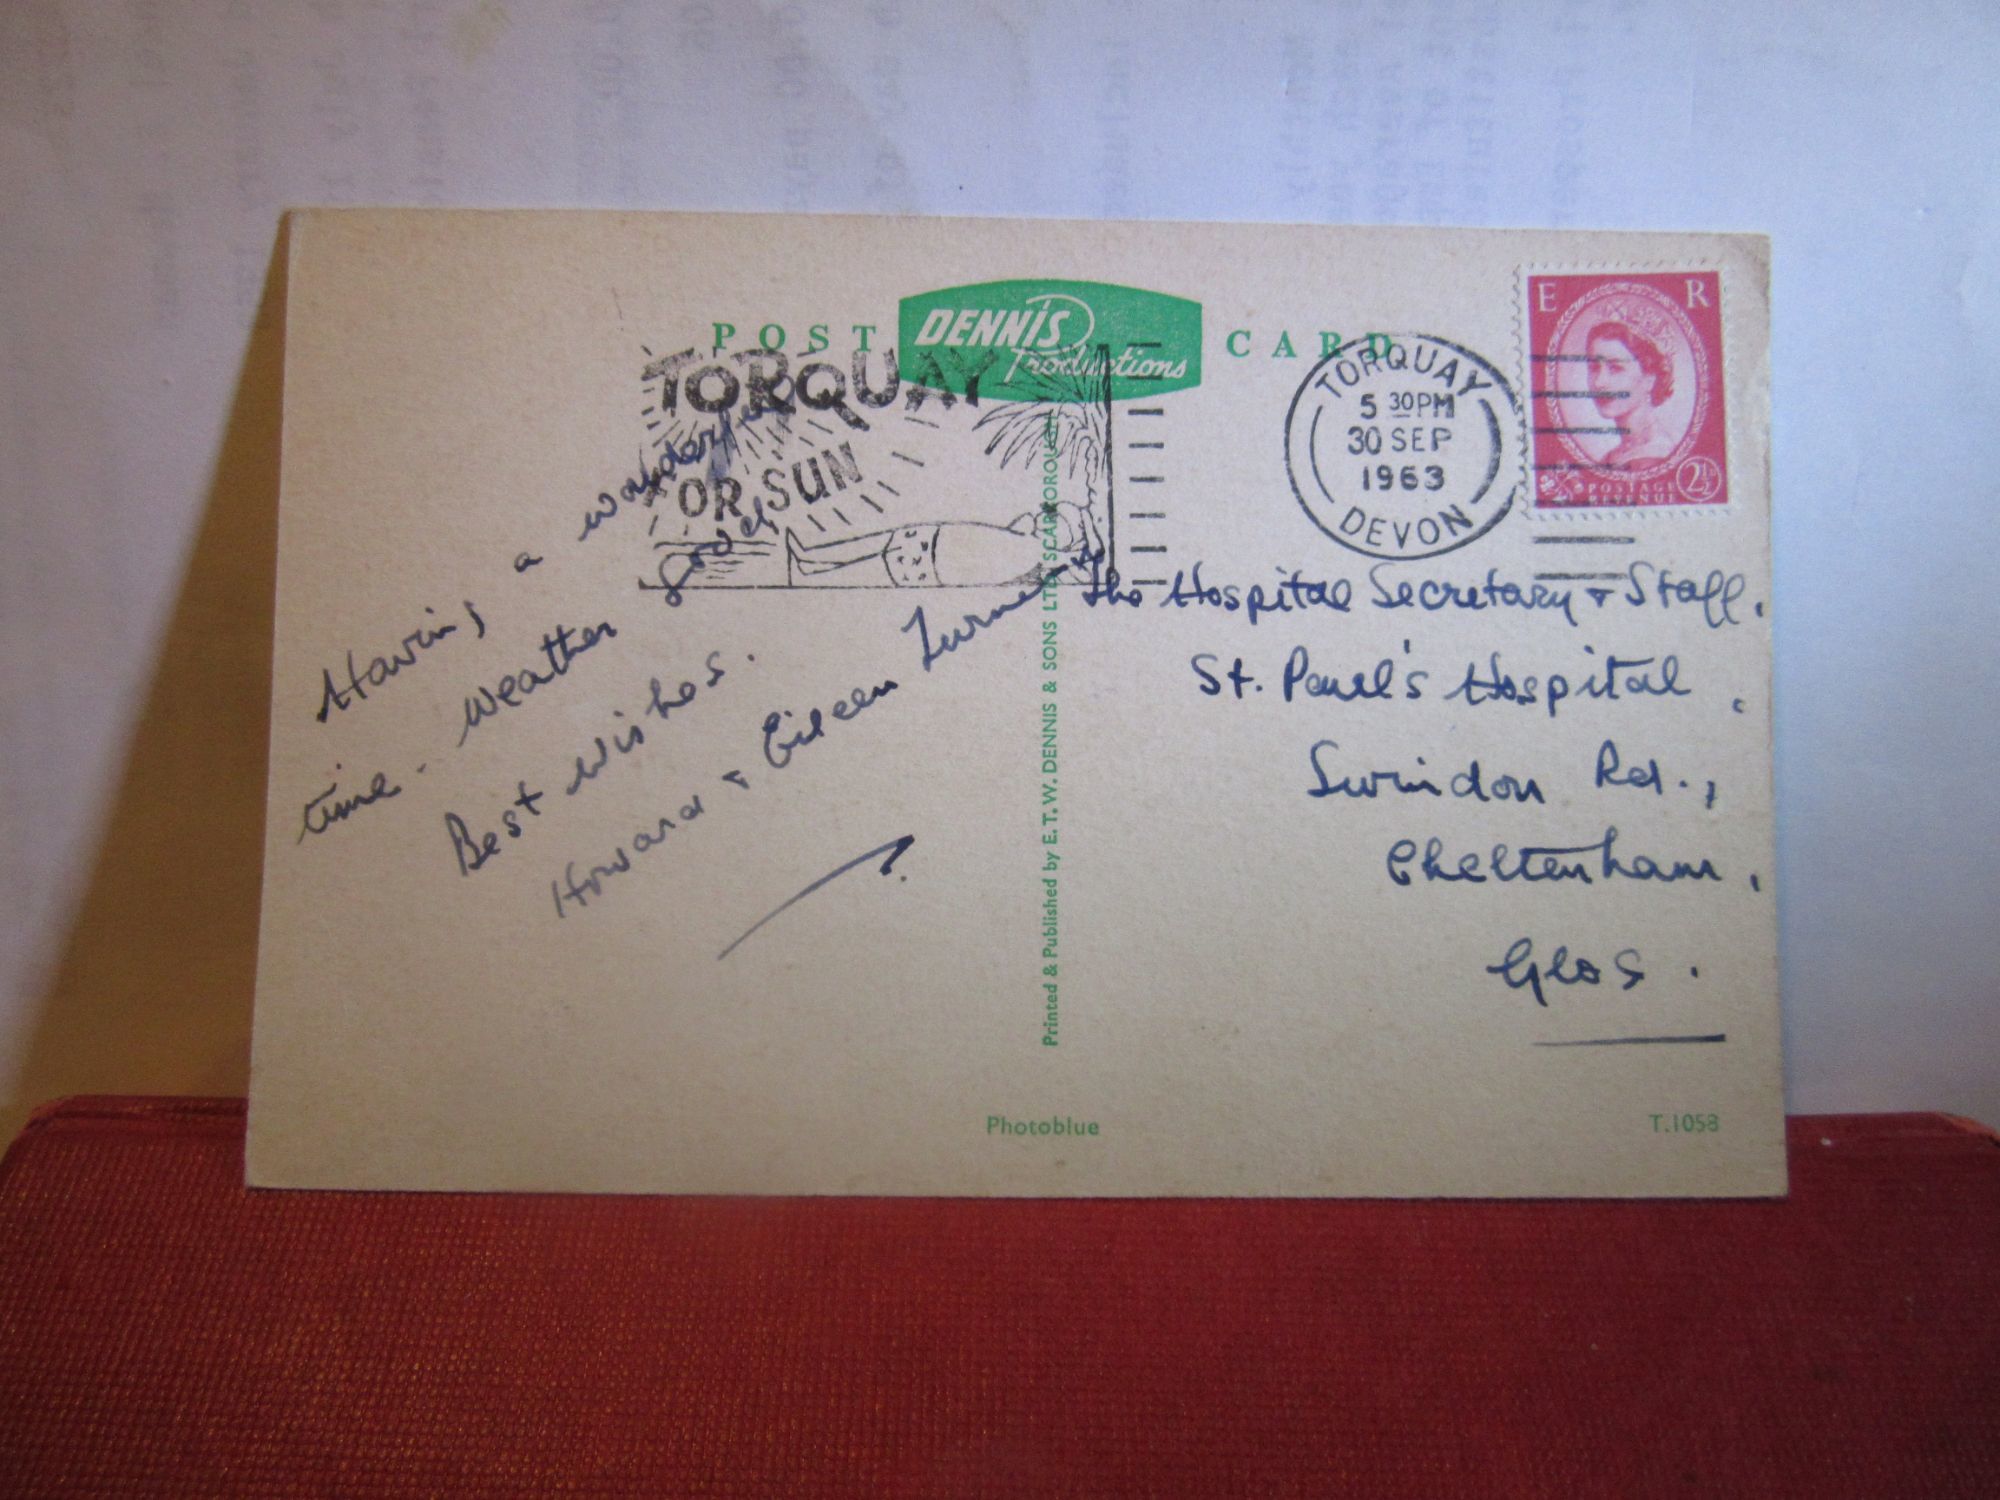 POST DENNIS Productions CARD
TORQUAY
FOR SUN
TORQUAY
5 30PM
30 SEP
1963
DEVON
E R
POSTAGE
REVENUE
2½
Having a wonderful
time. Weather good.
Best wishes.
Howard & Eileen Turner
The Hospital Secretary & Staff,
St. Paul's Hospital,
Swindon Rd.,
Cheltenham,
Glos.
Printed & Published by E. T. W. DENNIS & SONS LTD SCARBOROUGH
Photoblue
T.1058